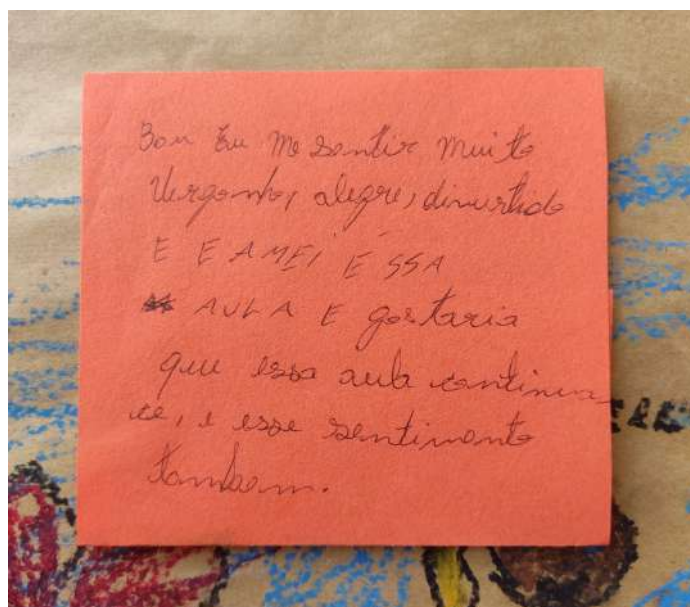 Bom Eu me sentir muito
Vergonha, alegre, divertido
E E AMEI ESSA
AULA E gostaria
que essa aula continua-
ce, e esse sentimento
tambem.